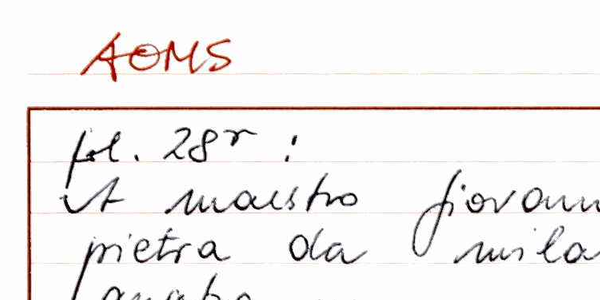 AOMS
fol. 28r :
A maestro giovann
pietra da mila